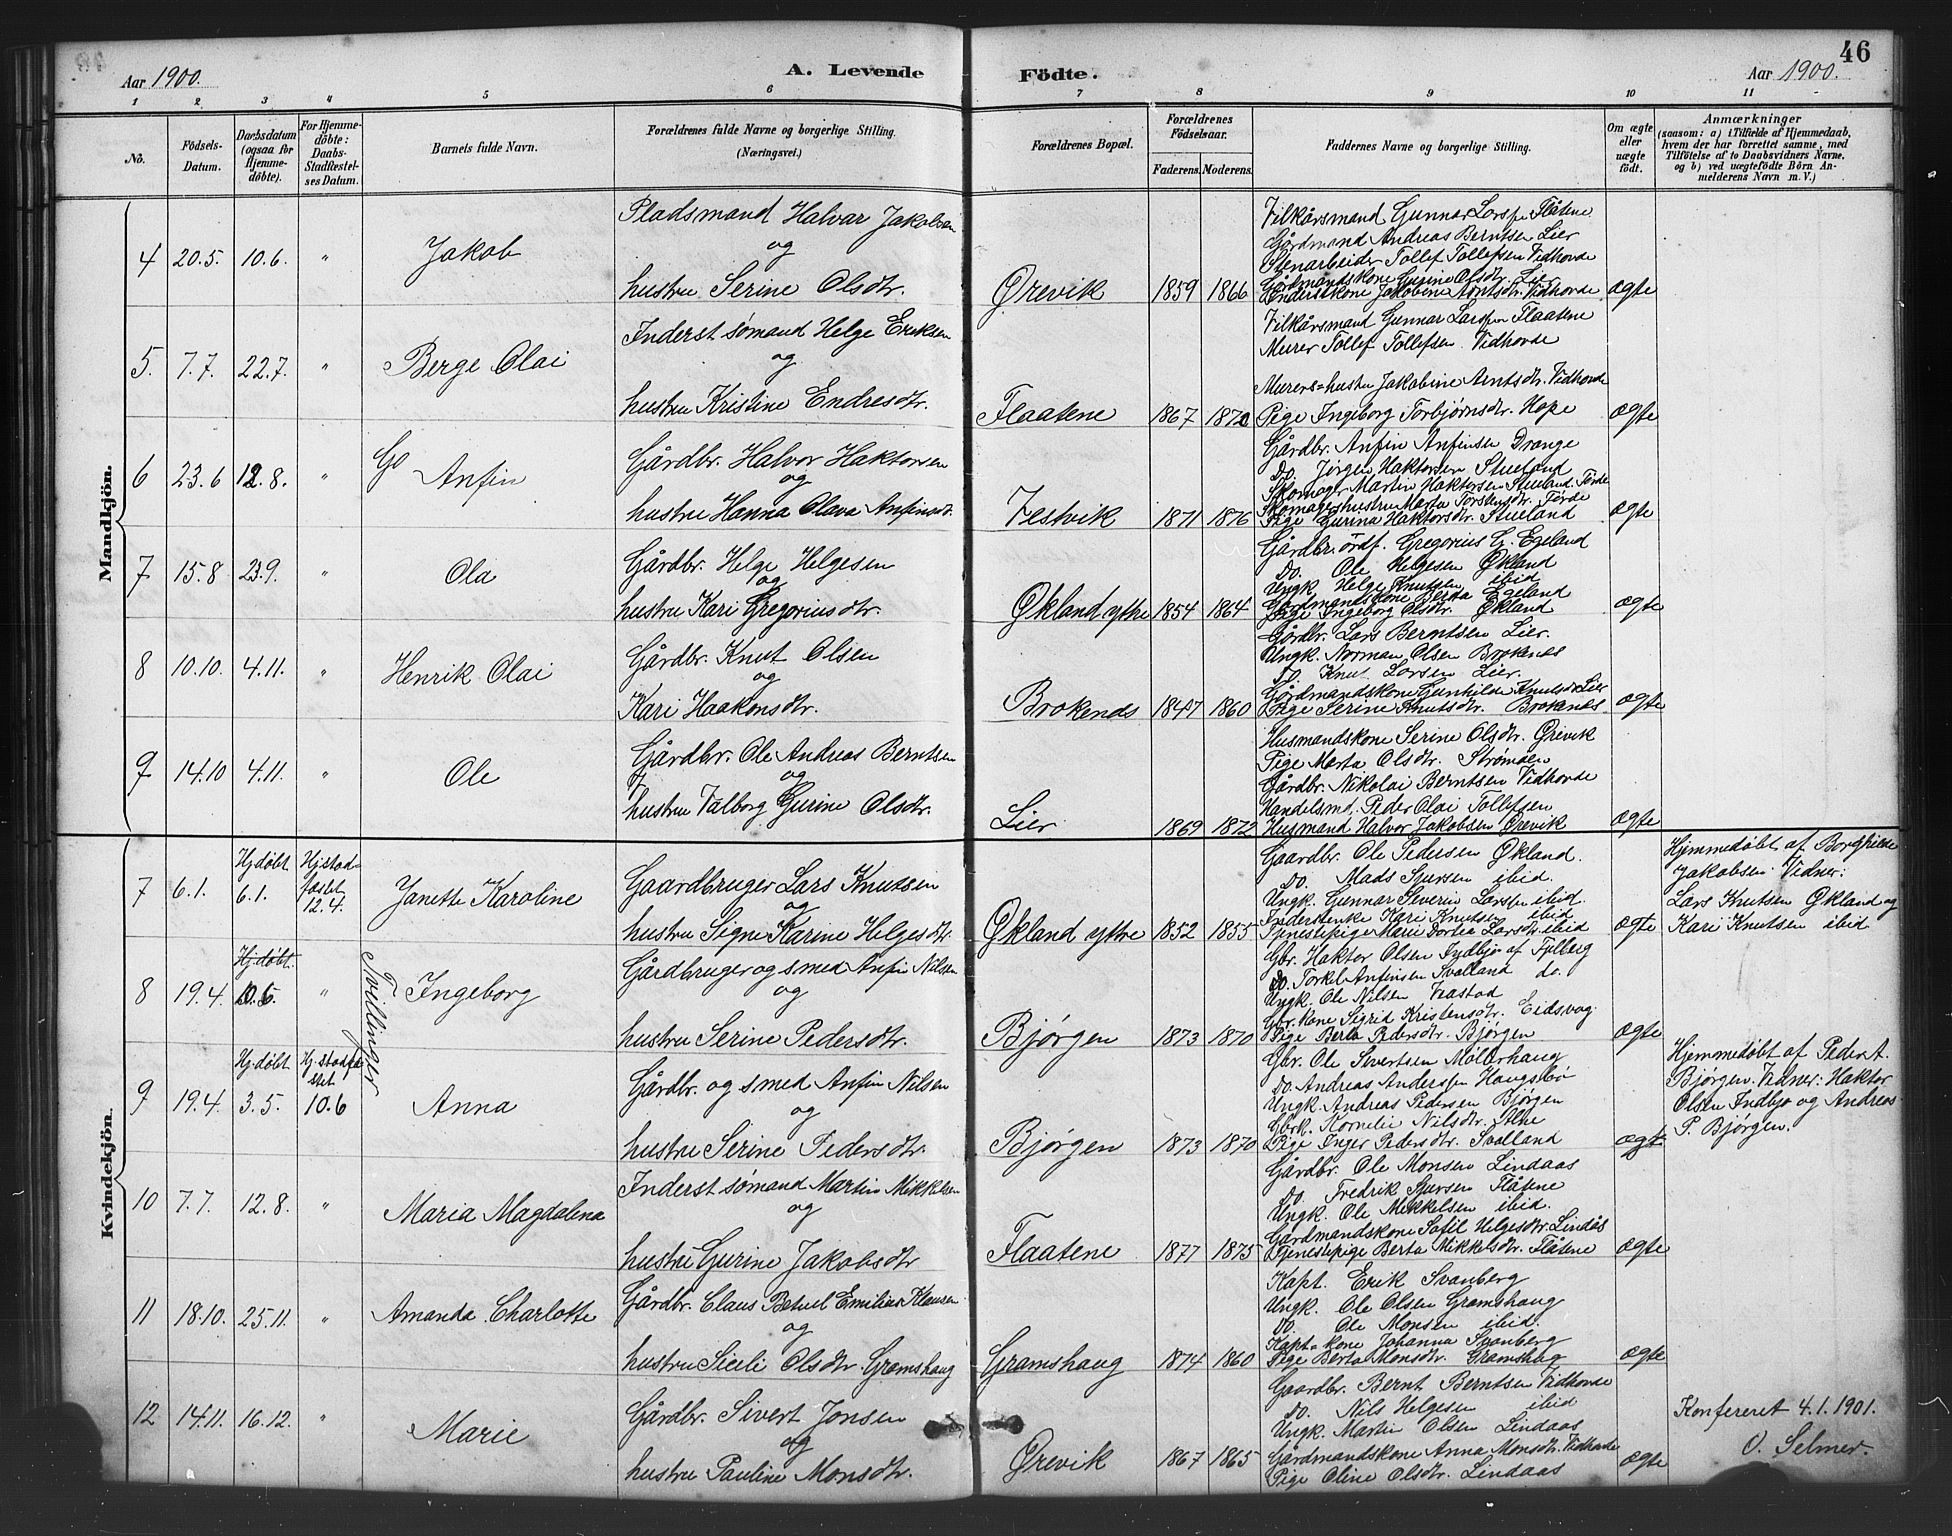 46
Aar 1900. A. Levende Födte. Aar 1900.
1 2 3 4 5 6 7 8 9 10 11
No.
Födsels-
Datum.
Daabsdatum
(ogsaa for
Hjemme-
döbte).
For Hjemme-
döbte:
Daabs-
Stadfæstel-
ses Datum.
Barnets fulde Navn.
Forældrenes fulde Navne og borgerlige Stilling.
(Næringsvei.)
Forældrenes Bopæl.
Forældrenes
Födselsaar.
Faderens. Moderens.
Faddernes Navne og borgerlige Stilling.
Om ægte
eller
uægte
födt.
Anmærkninger
(saasom: a) i Tilfælde af Hjemmedaab,
hvem der har forrettet samme, med
Tilföielse af to Daabsvidners Navne,
og b) ved uægtefödte Börn An-
melderens Navn m. V.)
Mandkjön.
4 20.5. 10.6. " Jakob
Pladsmand Halvar Jakobsen
og
hustru Serine Olsdtr.
Ørevik 1859 1866
Vilkårsmand Gunnar Larssen Flåtene
Gårdmand Andreas Berntsen Lier
Stenarbeider Tollef Tollefsen Vidhovde
Gårdmandskone Gurine Olsdtr. Lier
Inderstkone Jakobine Arntsdtr. Vidhovde
ægte
5. 7.7. 22.7. " Berge Olai
Inderst sømand Helge Eriksen
og
hustru Kristine Endresdtr.
Flaatene 1867 1870
Vilkårsmand Gunnar Larssen Flaatene
Murer Tollef Tollefsen Vidhovde
Murers=hustru Jakobine Arntsdtr. Vidhovde
Pige Ingeborg Torbjørnsdtr. Hope
ægte
6 23.6 12.8. " Anfin
Gårdbr. Halvor Haktorsen
og
hustru Hanna Olava Anfinsdtr.
Vestvik 1871 1876
Gårdbr. Anfin Anfinsen Drange
Do. Jørgen Haktorsen Stueland
Skomager Martin Haktorsen Stueland. Førde
Skomagerhustru Marta Torstensdtr. Førde
Pige Gurina Haktorsdtr. Stueland
ægte
7 15.8 23.9. " Ola
Gårdbr. Helge Helgesen
og
hustru Kari Gregoriusdtr.
Økland ytre 1854 1864
Gårdbr. ordf. Gregorius G. Egeland
Do. Ole Helgesen Økland
Ungk. Helge Knutsen ibid
Gårdmandskone Berta Egeland
Pige Ingeborg Olsdtr. Økland
ægte
8 10.10. 4.11. " Henrik Olai
Gårdbr. Knut Olsen
og
Kari Haakonsdtr.
Brokenes 1847 1860
Gårdbr. Lars Berntsen Lier.
Ungk. Norman Olsen Brokenes
Do. Knut Larsen Lier.
Gårdmandskone Gunhilde Knutsdtr Lier
Pige Serine Knutsdtr. Brokenes
ægte
9 14.10 4.11. " Ole
Gårdbr. Ole Andreas Berntsen
og
hustru Valborg Gurine Olsdtr.
Lier 1869 1872
Husmandskone Serine Olsdtr. Ørevik
Pige Marta Olsdtr. Strømøen
Gårdbr. Nikolai Berntsen Vidhovde
Handelsmd. Peder Olai Tollefsen
Husmand Halvor Jakobsen Ørevik
ægte
Kvindekjön.
7 6.1. Hj.døbt 6.1. Hj.stad-
fæstet
12.4.
Janette Karoline
Gaardbruger Lars Knutsen
og
hustru Signe Karine Helgesdtr.
Økland ytre 1852 1855
Gaardbr. Ole Pedersen Økland.
Do. Mads Sjursen ibid.
Ungk. Gunnar Severin Larssen ibid.
Inderstenke Kari Knutsen ibid
Tjenestepige Marie Dortea Larsdtr. ibid
ægte
Hjemmedøbt af Borghilde
Jakobsen. Vidner:
Lars Knutsen Økland og
Kari Knutsen ibid
8 19.4. Hj.døbt. 10.6 " Ingeborg
Tvillinger
Gårdbruger og smed Anfin Nilsen
og
hustru Serine Pedersdtr.
Bjørgen 1873 1870
Gbr. Haktor Olsen Indbjo af Fjelberg
Do. Torkel Anfinsen Svalland do.
Ungk. Ole Nilsen Vrastad
Gbr. kone Sigrid Kristensdtr. Eidsvåg
Pige Berta Pedersdtr. Bjørgen
ægte
9 19.4. Hj.døbt 3.5. Hj.stadfæ
stet
10.6 Anna
Gårdbr. og smed Anfin Nilsen
og
hustru Serine Pedersdtr.
Bjørgen 1873 1870
Gbr. Ole Sivertsen Møllerhaug
Do. Andreas Anderssen Haugsbø
Ungk. Andreas Pedersen Bjørgen
Gbrk. Kornelie Nilsdtr.
Pige Inger Pedersdtr. Svalland
ægte
Hjemmedøbt af Peder A.
Bjørgen. Vidner: Haktor
Olsen Indbjo og Andreas
P. Bjørgen.
10 7.7. 12.8. " Maria Magdalena
Inderst sømand Martin Mikkelsen
og
hustru Gurine Jakobsdtr
Flaatene 1877 1875
Gårdbr. Ole Monsen Lindaas
Do. Fredrik Sjursen Flåtene
Ungk. Ole Mikkelsen ibid.
Gårdmandskone Sofil Helgesdtr. Lindås
Tjenestepige Berta Mikkelsdtr. Flåtene
ægte
11 18.10. 25.11. " Amanda Charlotte
Gårdbr. Claus Betuel Emilius Klausen
og
hustru Sicili Olsdtr. Gramshaug
Gramshaug 1874 1860
Kapt. Erik Svanberg
Ungk. Ole Olsen Gramshaug
Do. Ole Monsen ibid.
Kapt-kone Johanna Svanberg
Pige Berta Monsdtr. Gramshag
ægte
12 14.11. 16.12. " Marie
Gårdbr. Sivert Jonsen
og
hustru Pauline Monsdtr.
Ørevik 1867 1865
Gaardbr. Bernt Berntsen Vidhovde
Do. Nils Helgesen ibid
Ungk. Martin Olsen Lindaas
Gårdmandskone Anna Monsdtr. Vidhovde
Pige Oline Olsdtr. Lindaas
ægte
Konfereret 4.1.1901.
O. Selmer.